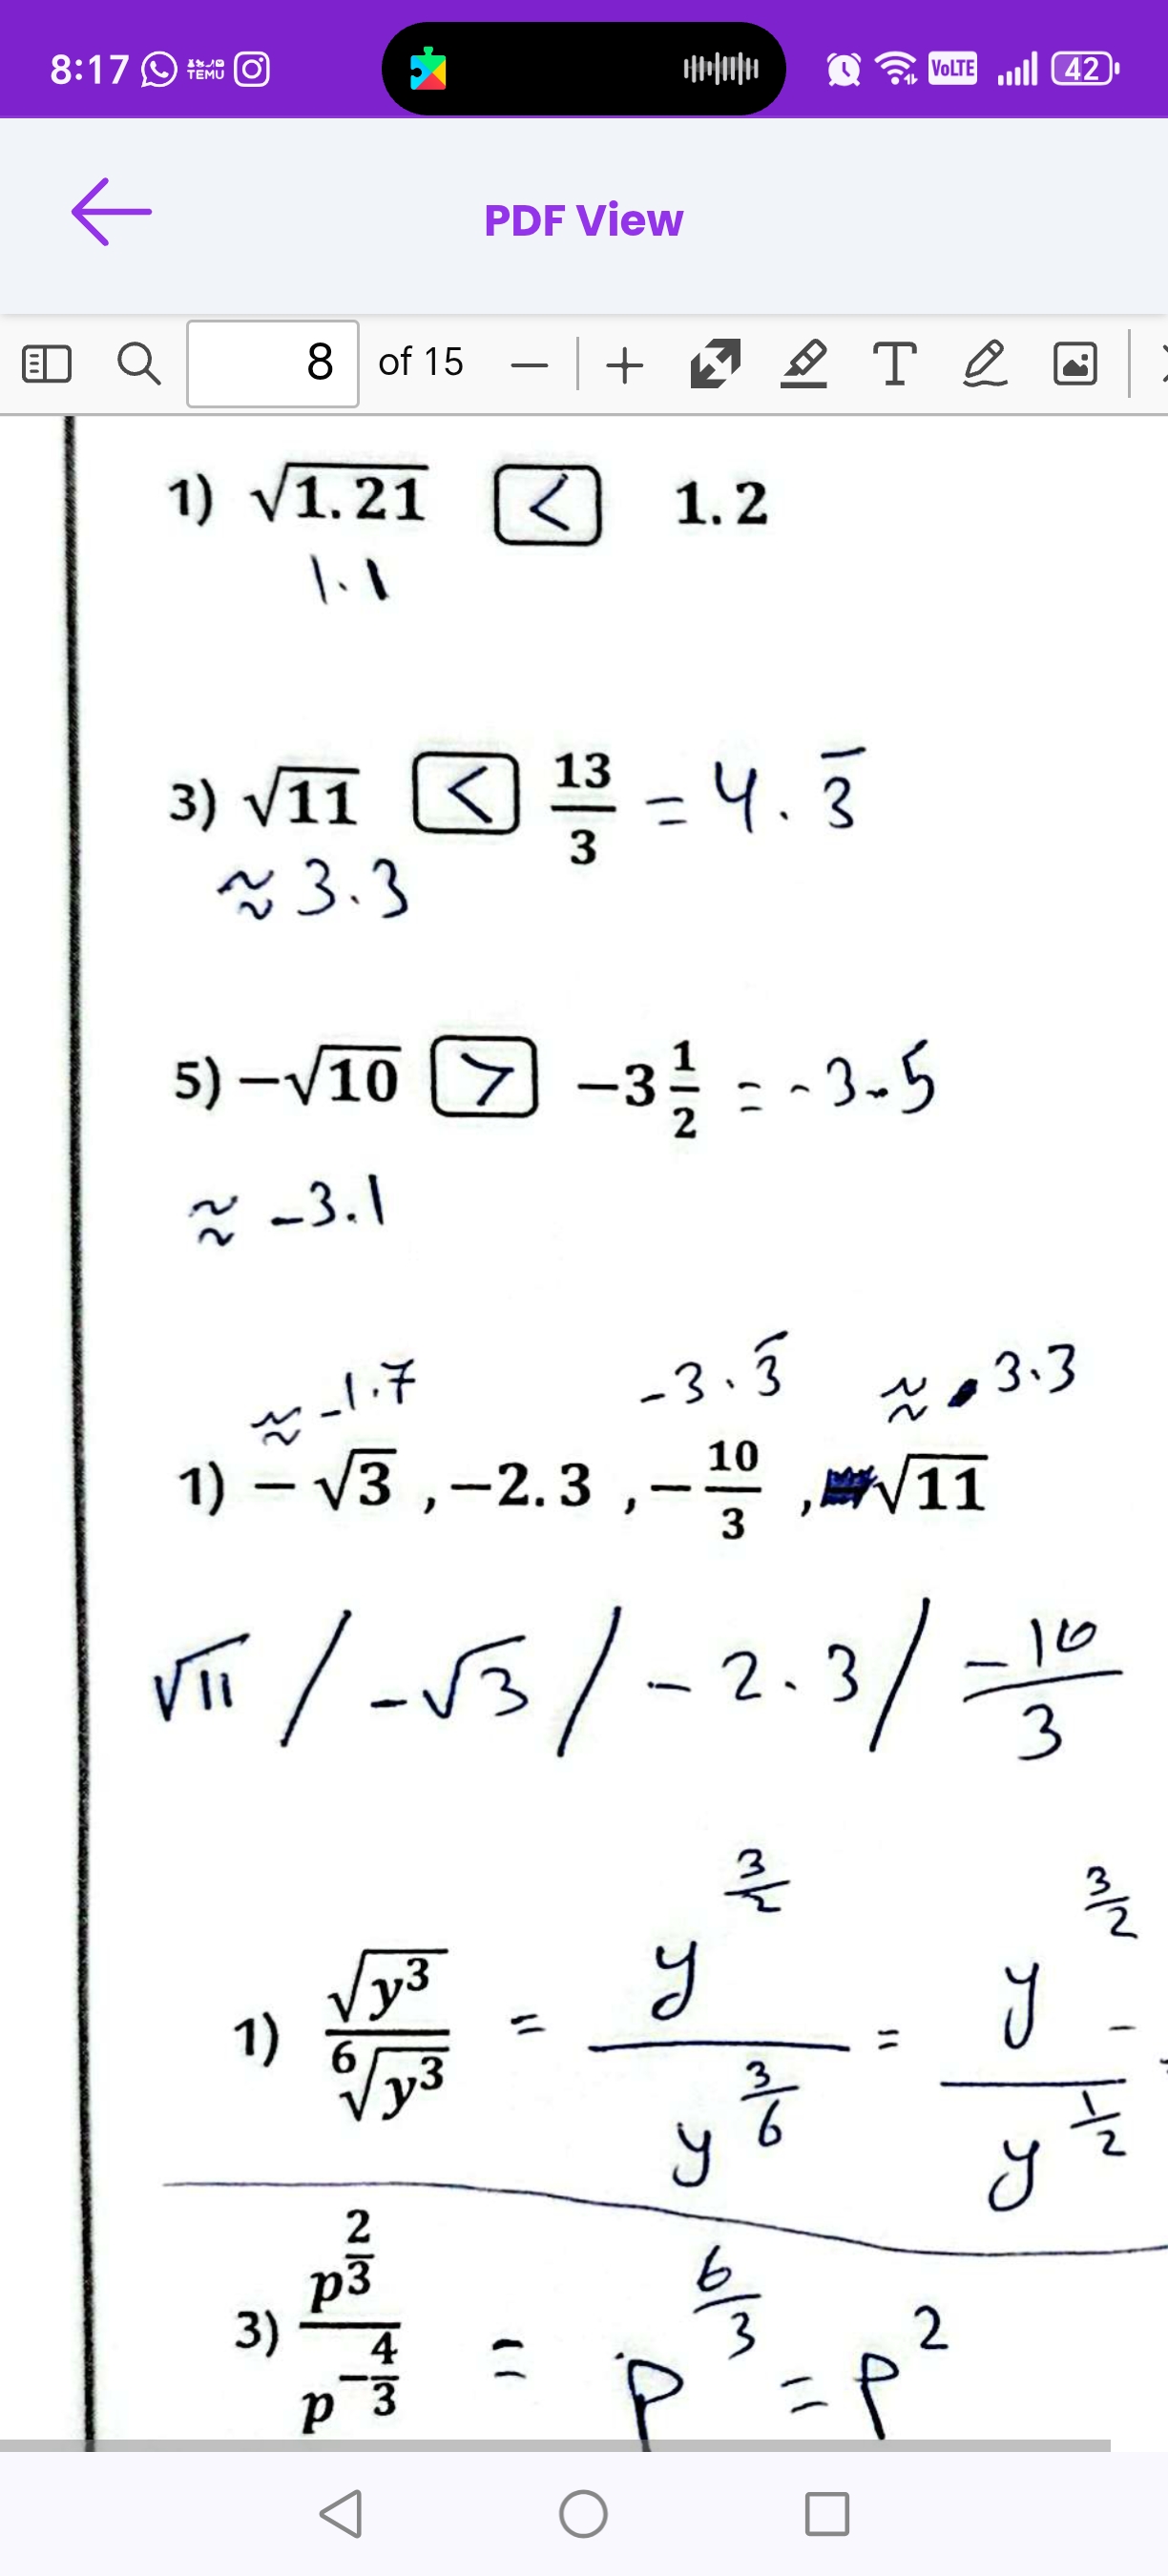 8:17 TEMU VoLTE 42
PDF View
8 of 15
1) √1.21 < 1.2
1.1
3) √11 < 13/3 = 4.3̅
≈ 3.3
5) −√10 > −3 1/2 = -3.5
≈ -3.1
≈ -1.7 -3.3̅ ≈ 3.3
1) −√3 , −2.3 , −10/3 , √11
√11 / -√3 / -2.3 / -10/3
1) √y³ / ⁶√y³ = y^(3/2) / y^(3/6) = y^(3/2) / y^(1/2) -
3) p^(2/3) / p^(−4/3) = p^(6/3) = p²